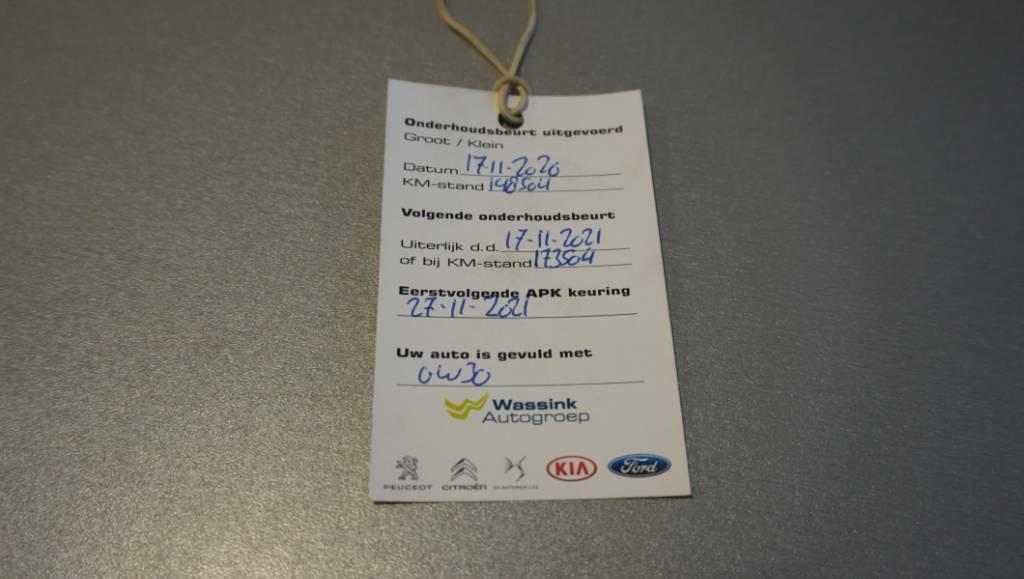 Onderhoudsbeurt uitgevoerd
Groot / Klein
Datum 17-11-2020
KM-stand 148504
Volgende onderhoudsbeurt
Uiterlijk d.d. 17-11-2021
of bij KM-stand 173504
Eerstvolgende APK keuring
27-11-2021
Uw auto is gevuld met
0W30
Wassink
Autogroep
PEUGEOT CITROËN KIA Ford